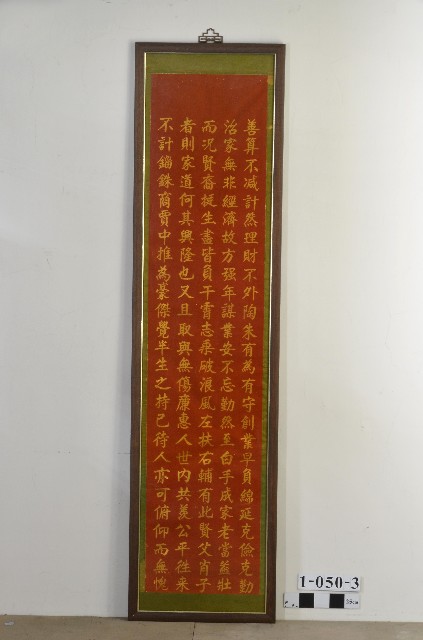 善算不减計然理財不外陶朱有為有守創業早負綿延克儉克勤
治家無非經濟故方强年謀業安不忘勤然至白手成家老當益壯
而况賢裔挺生盡皆負干霄志乘破浪風左扶右輔有此賢父肖子
者則家道何其興隆也又且取與無傷廉惠人世内共羨公平往来
不計錙銖商賈中推為豪傑覺半生之持己待人亦可俯仰而無愧
1-050-3